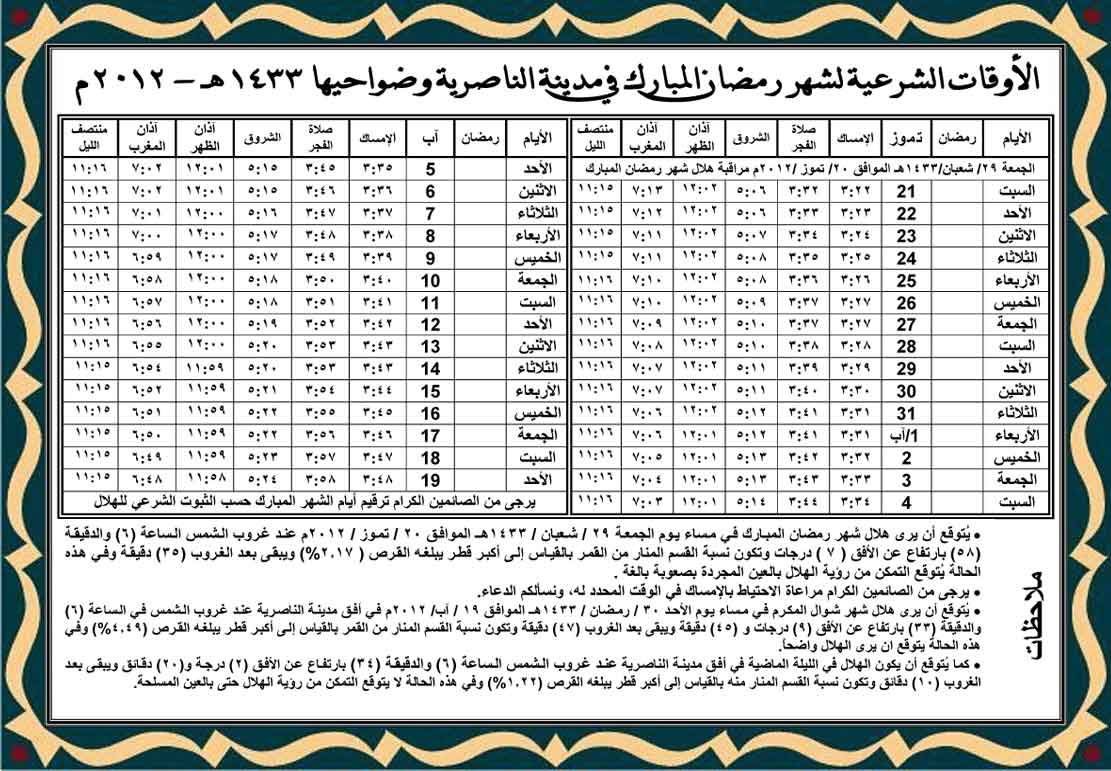 الأوقات الشرعية لشهر رمضان المبارك في مدينة الناصرية وضواحيها ١٤٣٣هـ – ٢٠١٢م
الأيام رمضان تموز الإمساك صلاة الفجر الشروق آذان الظهر آذان المغرب منتصف الليل
الجمعة ٢٩/ شعبان/١٤٣٣هـ الموافق ٢٠/ تموز /٢٠١٢م مراقبة هلال شهر رمضان المبارك
السبت 21 ٣:٢٢ ٣:٣٢ ٥:٠٦ ١٢:٠٢ ٧:١٣ ١١:١٥
الأحد 22 ٣:٢٣ ٣:٣٣ ٥:٠٦ ١٢:٠٢ ٧:١٢ ١١:١٥
الاثنين 23 ٣:٢٤ ٣:٣٤ ٥:٠٧ ١٢:٠٢ ٧:١١ ١١:١٥
الثلاثاء 24 ٣:٢٥ ٣:٣٥ ٥:٠٨ ١٢:٠٢ ٧:١١ ١١:١٥
الأربعاء 25 ٣:٢٦ ٣:٣٦ ٥:٠٨ ١٢:٠٢ ٧:١٠ ١١:١٦
الخميس 26 ٣:٢٧ ٣:٣٧ ٥:٠٩ ١٢:٠٢ ٧:١٠ ١١:١٦
الجمعة 27 ٣:٢٧ ٣:٣٧ ٥:١٠ ١٢:٠٢ ٧:٠٩ ١١:١٦
السبت 28 ٣:٢٨ ٣:٣٨ ٥:١٠ ١٢:٠٢ ٧:٠٨ ١١:١٦
الأحد 29 ٣:٢٩ ٣:٣٩ ٥:١١ ١٢:٠٢ ٧:٠٧ ١١:١٦
الاثنين 30 ٣:٣٠ ٣:٤٠ ٥:١١ ١٢:٠٢ ٧:٠٧ ١١:١٦
الثلاثاء 31 ٣:٣١ ٣:٤١ ٥:١٢ ١٢:٠٢ ٧:٠٦ ١١:١٦
الأربعاء 1/آب ٣:٣١ ٣:٤١ ٥:١٢ ١٢:٠١ ٧:٠٦ ١١:١٦
الخميس 2 ٣:٣٢ ٣:٤٢ ٥:١٣ ١٢:٠١ ٧:٠٥ ١١:١٦
الجمعة 3 ٣:٣٣ ٣:٤٣ ٥:١٣ ١٢:٠١ ٧:٠٤ ١١:١٦
السبت 4 ٣:٣٤ ٣:٤٤ ٥:١٤ ١٢:٠١ ٧:٠٣ ١١:١٦
الأيام رمضان آب الإمساك صلاة الفجر الشروق آذان الظهر آذان المغرب منتصف الليل
الأحد 5 ٣:٣٥ ٣:٤٥ ٥:١٥ ١٢:٠١ ٧:٠٢ ١١:١٦
الاثنين 6 ٣:٣٦ ٣:٤٦ ٥:١٥ ١٢:٠١ ٧:٠٢ ١١:١٦
الثلاثاء 7 ٣:٣٧ ٣:٤٧ ٥:١٦ ١٢:٠٠ ٧:٠١ ١١:١٦
الأربعاء 8 ٣:٣٨ ٣:٤٨ ٥:١٧ ١٢:٠٠ ٧:٠٠ ١١:١٦
الخميس 9 ٣:٣٩ ٣:٤٩ ٥:١٧ ١٢:٠٠ ٦:٥٩ ١١:١٦
الجمعة 10 ٣:٤٠ ٣:٥٠ ٥:١٨ ١٢:٠٠ ٦:٥٨ ١١:١٦
السبت 11 ٣:٤١ ٣:٥١ ٥:١٨ ١٢:٠٠ ٦:٥٧ ١١:١٦
الأحد 12 ٣:٤٢ ٣:٥٢ ٥:١٩ ١٢:٠٠ ٦:٥٦ ١١:١٦
الاثنين 13 ٣:٤٣ ٣:٥٣ ٥:٢٠ ١٢:٠٠ ٦:٥٥ ١١:١٦
الثلاثاء 14 ٣:٤٣ ٣:٥٣ ٥:٢٠ ١١:٥٩ ٦:٥٤ ١١:١٥
الأربعاء 15 ٣:٤٤ ٣:٥٤ ٥:٢١ ١١:٥٩ ٦:٥٢ ١١:١٥
الخميس 16 ٣:٤٥ ٣:٥٥ ٥:٢٢ ١١:٥٩ ٦:٥١ ١١:١٥
الجمعة 17 ٣:٤٦ ٣:٥٦ ٥:٢٢ ١١:٥٩ ٦:٥٠ ١١:١٥
السبت 18 ٣:٤٧ ٣:٥٧ ٥:٢٣ ١١:٥٩ ٦:٤٩ ١١:١٥
الأحد 19 ٣:٤٨ ٣:٥٨ ٥:٢٤ ١١:٥٨ ٦:٤٨ ١١:١٥
يرجى من الصائمين الكرام ترقيم أيام الشهر المبارك حسب الثبوت الشرعي للهلال
ملاحظات
• يُتوقع أن يرى هلال شهر رمضان المبارك في مساء يوم الجمعة ٢٩ / شعبان / ١٤٣٣هـ الموافق ٢٠ / تموز / ٢٠١٢م عند غروب الشمس الساعة (٦) والدقيقة
(٥٨) بارتفاع عن الأفق ( ٧ ) درجات وتكون نسبة القسم المنار من القمر بالقياس إلى أكبر قطر يبلغه القرص ( ٢.١٧%) ويبقى بعد الغروب (٣٥) دقيقة وفي هذه
الحالة يُتوقع التمكن من رؤية الهلال بالعين المجردة بصعوبة بالغة .
• يرجى من الصائمين الكرام مراعاة الاحتياط بالإمساك في الوقت المحدد له، ونسألكم الدعاء.
• يُتوقع أن يرى هلال شهر شوال المكرم في مساء يوم الأحد ٣٠ / رمضان / ١٤٣٣هـ الموافق ١٩ / آب/ ٢٠١٢م في أفق مدينة الناصرية عند غروب الشمس في الساعة (٦)
والدقيقة (٣٣) بارتفاع عن الأفق (٩) درجات و (٤٥) دقيقة ويبقى بعد الغروب (٤٧) دقيقة وتكون نسبة القسم المنار من القمر بالقياس إلى أكبر قطر يبلغه القرص (٤.٤٩%) وفي
هذه الحالة يتوقع ان يرى الهلال واضحاً.
• كما يُتوقع أن يكون الهلال في الليلة الماضية في أفق مدينة الناصرية عند غروب الشمس الساعة (٦) والدقيقة (٣٤) بارتفاع عن الأفق (٢) درجة و(٢٠) دقائق ويبقى بعد
الغروب (١٠) دقائق وتكون نسبة القسم المنار منه بالقياس إلى أكبر قطر يبلغه القرص (١.٢٢%) وفي هذه الحالة لا يتوقع التمكن من رؤية الهلال حتى بالعين المسلحة.